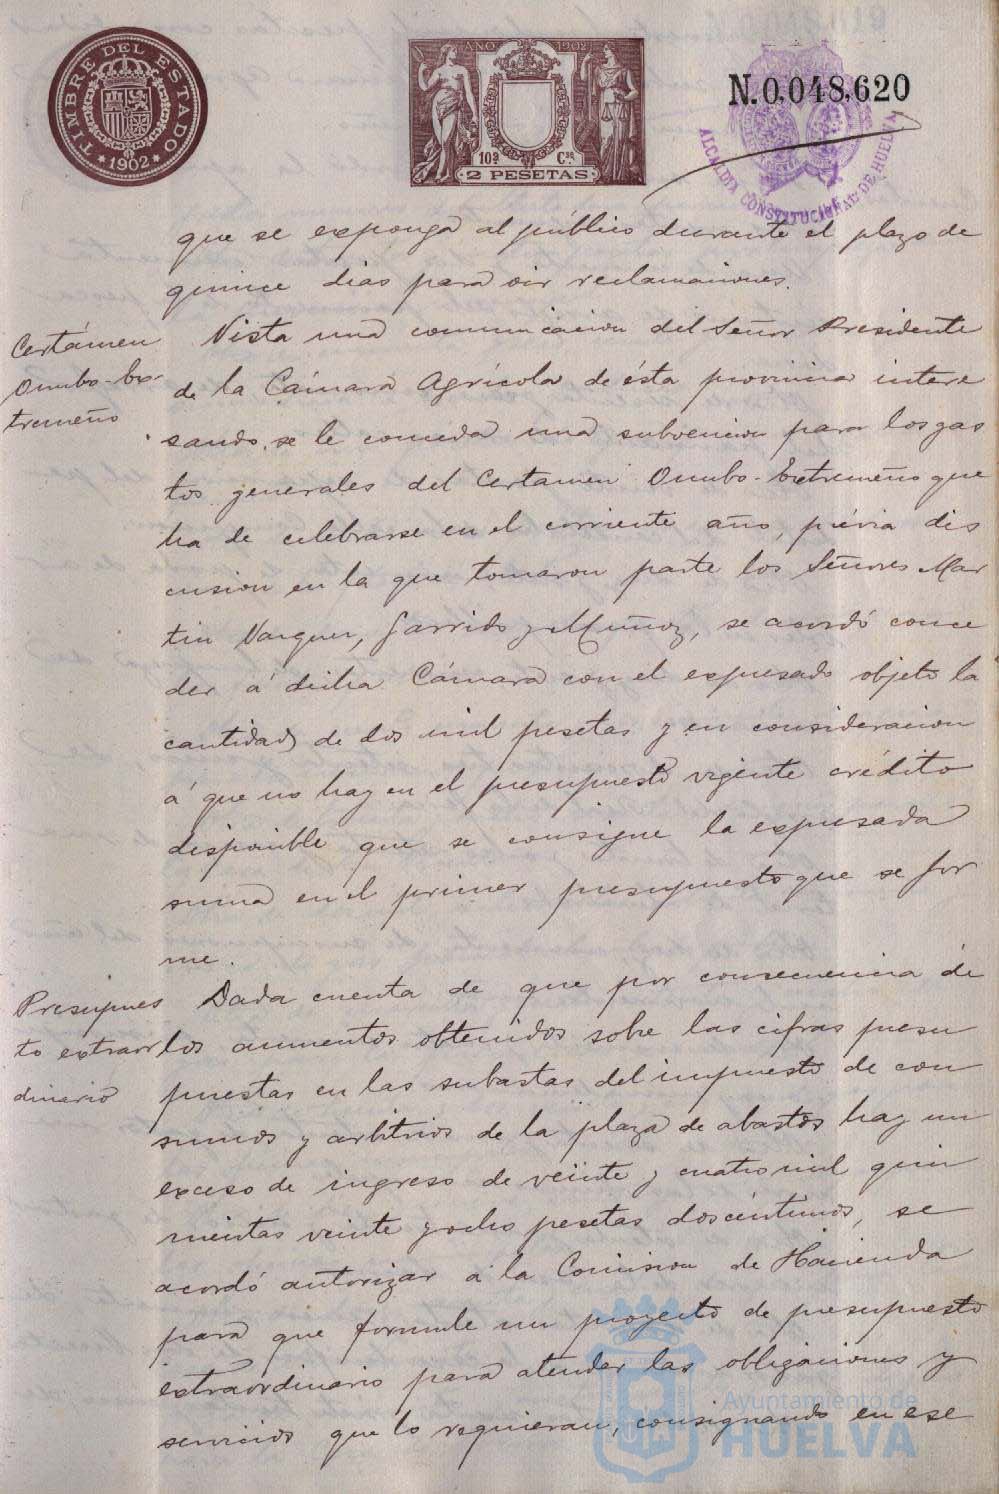 TIMBRE DEL ESTADO
* 1902 *
AÑO 1902
10ª Cse
2 PESETAS
N. 0,048,620
ALCALDIA CONSTITUCIONAL DE HUELVA
que se exponga al público durante el plazo de
quince dias para oir reclamaciones.
Certámen
Onubo-Ex-
tremeño
Vista una comunicacion del Señor Presidente
de la Cámara Agrícola de ésta provincia intere
sando, se le conceda una subvencion para los gas
tos generales del Certamen Onubo-Extremeño que
ha de celebrarse en el corriente año, prévia dis
cusion en la que tomaron parte los Señores Mar
tin Vazquez, Garrido y Muñoz, se acordó conce
der á dicha Cámara con el expresado objeto la
cantidad de dos mil pesetas y en consideracion
á que no hay en el presupuesto vigente crédito
disponible que se consigne la expresada
suma en el primer presupuesto que se for
me.
Presupues
to extraor
dinario
Dada cuenta de que por consecuencia de
los aumentos obtenidos sobre las cifras presu
puestas en las subastas del impuesto de con
sumos y arbitrios de la plaza de abastos hay un
exceso de ingreso de veinte y cuatro mil quin
nientas veinte y ocho pesetas dos céntimos, se
acordó autorizar á la Comision de Hacienda
para que formule un proyecto de presupuesto
extraordinario para atender las obligaciones y
servicios que lo requieran, consignando en ese
Ayuntamiento de
HUELVA